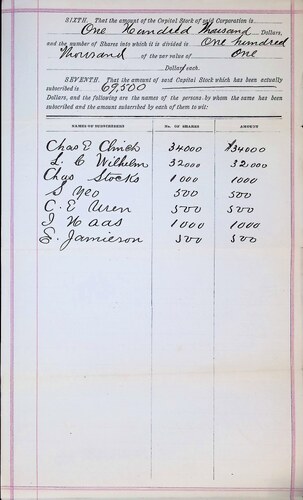 SIXTH. That the amount of the Capital Stock of said Corporation is
One Hundred Thousand Dollars,
and the number of Shares into which it is divided is One hundred
Thousand of the par value of One
Dollar each.
SEVENTH. That the amount of said Capital Stock which has been actually
subscribed is 69,500
Dollars, and the following are the names of the persons by whom the same has been
subscribed and the amount subscribed by each of them to wit:
NAMES OF SUBSCRIBERS No. OF SHARES AMOUNT
Chas E Clinch 34000 $34000
L. C Wilhelm 32000 32,000
Chas Stocks 1000 1000
S Yeo 500 500
C. E Uren 500 500
I Haas 1000 1000
E. Jamieson 500 500